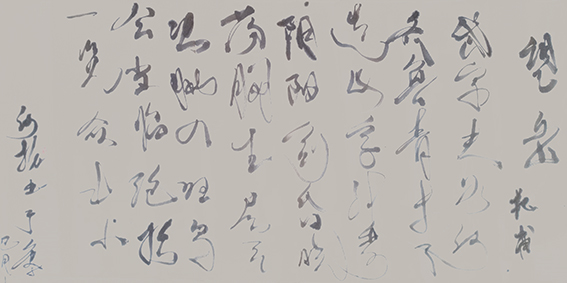 望岳 杜甫
岱宗夫如何
齐鲁青未了
造化钟神秀
阴阳割昏晓
荡胸生层云
决眦入归鸟
会当临绝顶
一览众山小
书于